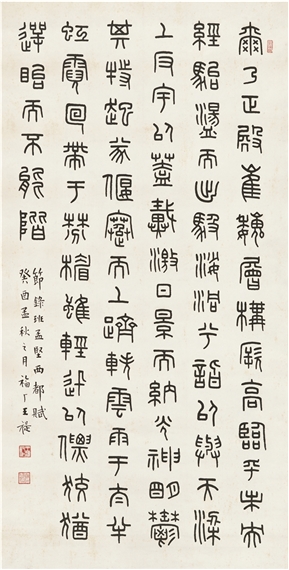 爾乃正殿崔巍層構厥高臨乎未央
經駘盪而出馺娑洞枍詣以與天梁
上反宇以蓋戴激日景而納光神明鬱
其特起遂偃蹇而上躋軼雲雨于太半
虹霓回帶于棼楣雖輕迅以僄狡猶
遻眙而不能階
節錄班孟堅西都賦
癸酉孟秋之月福厂王禔